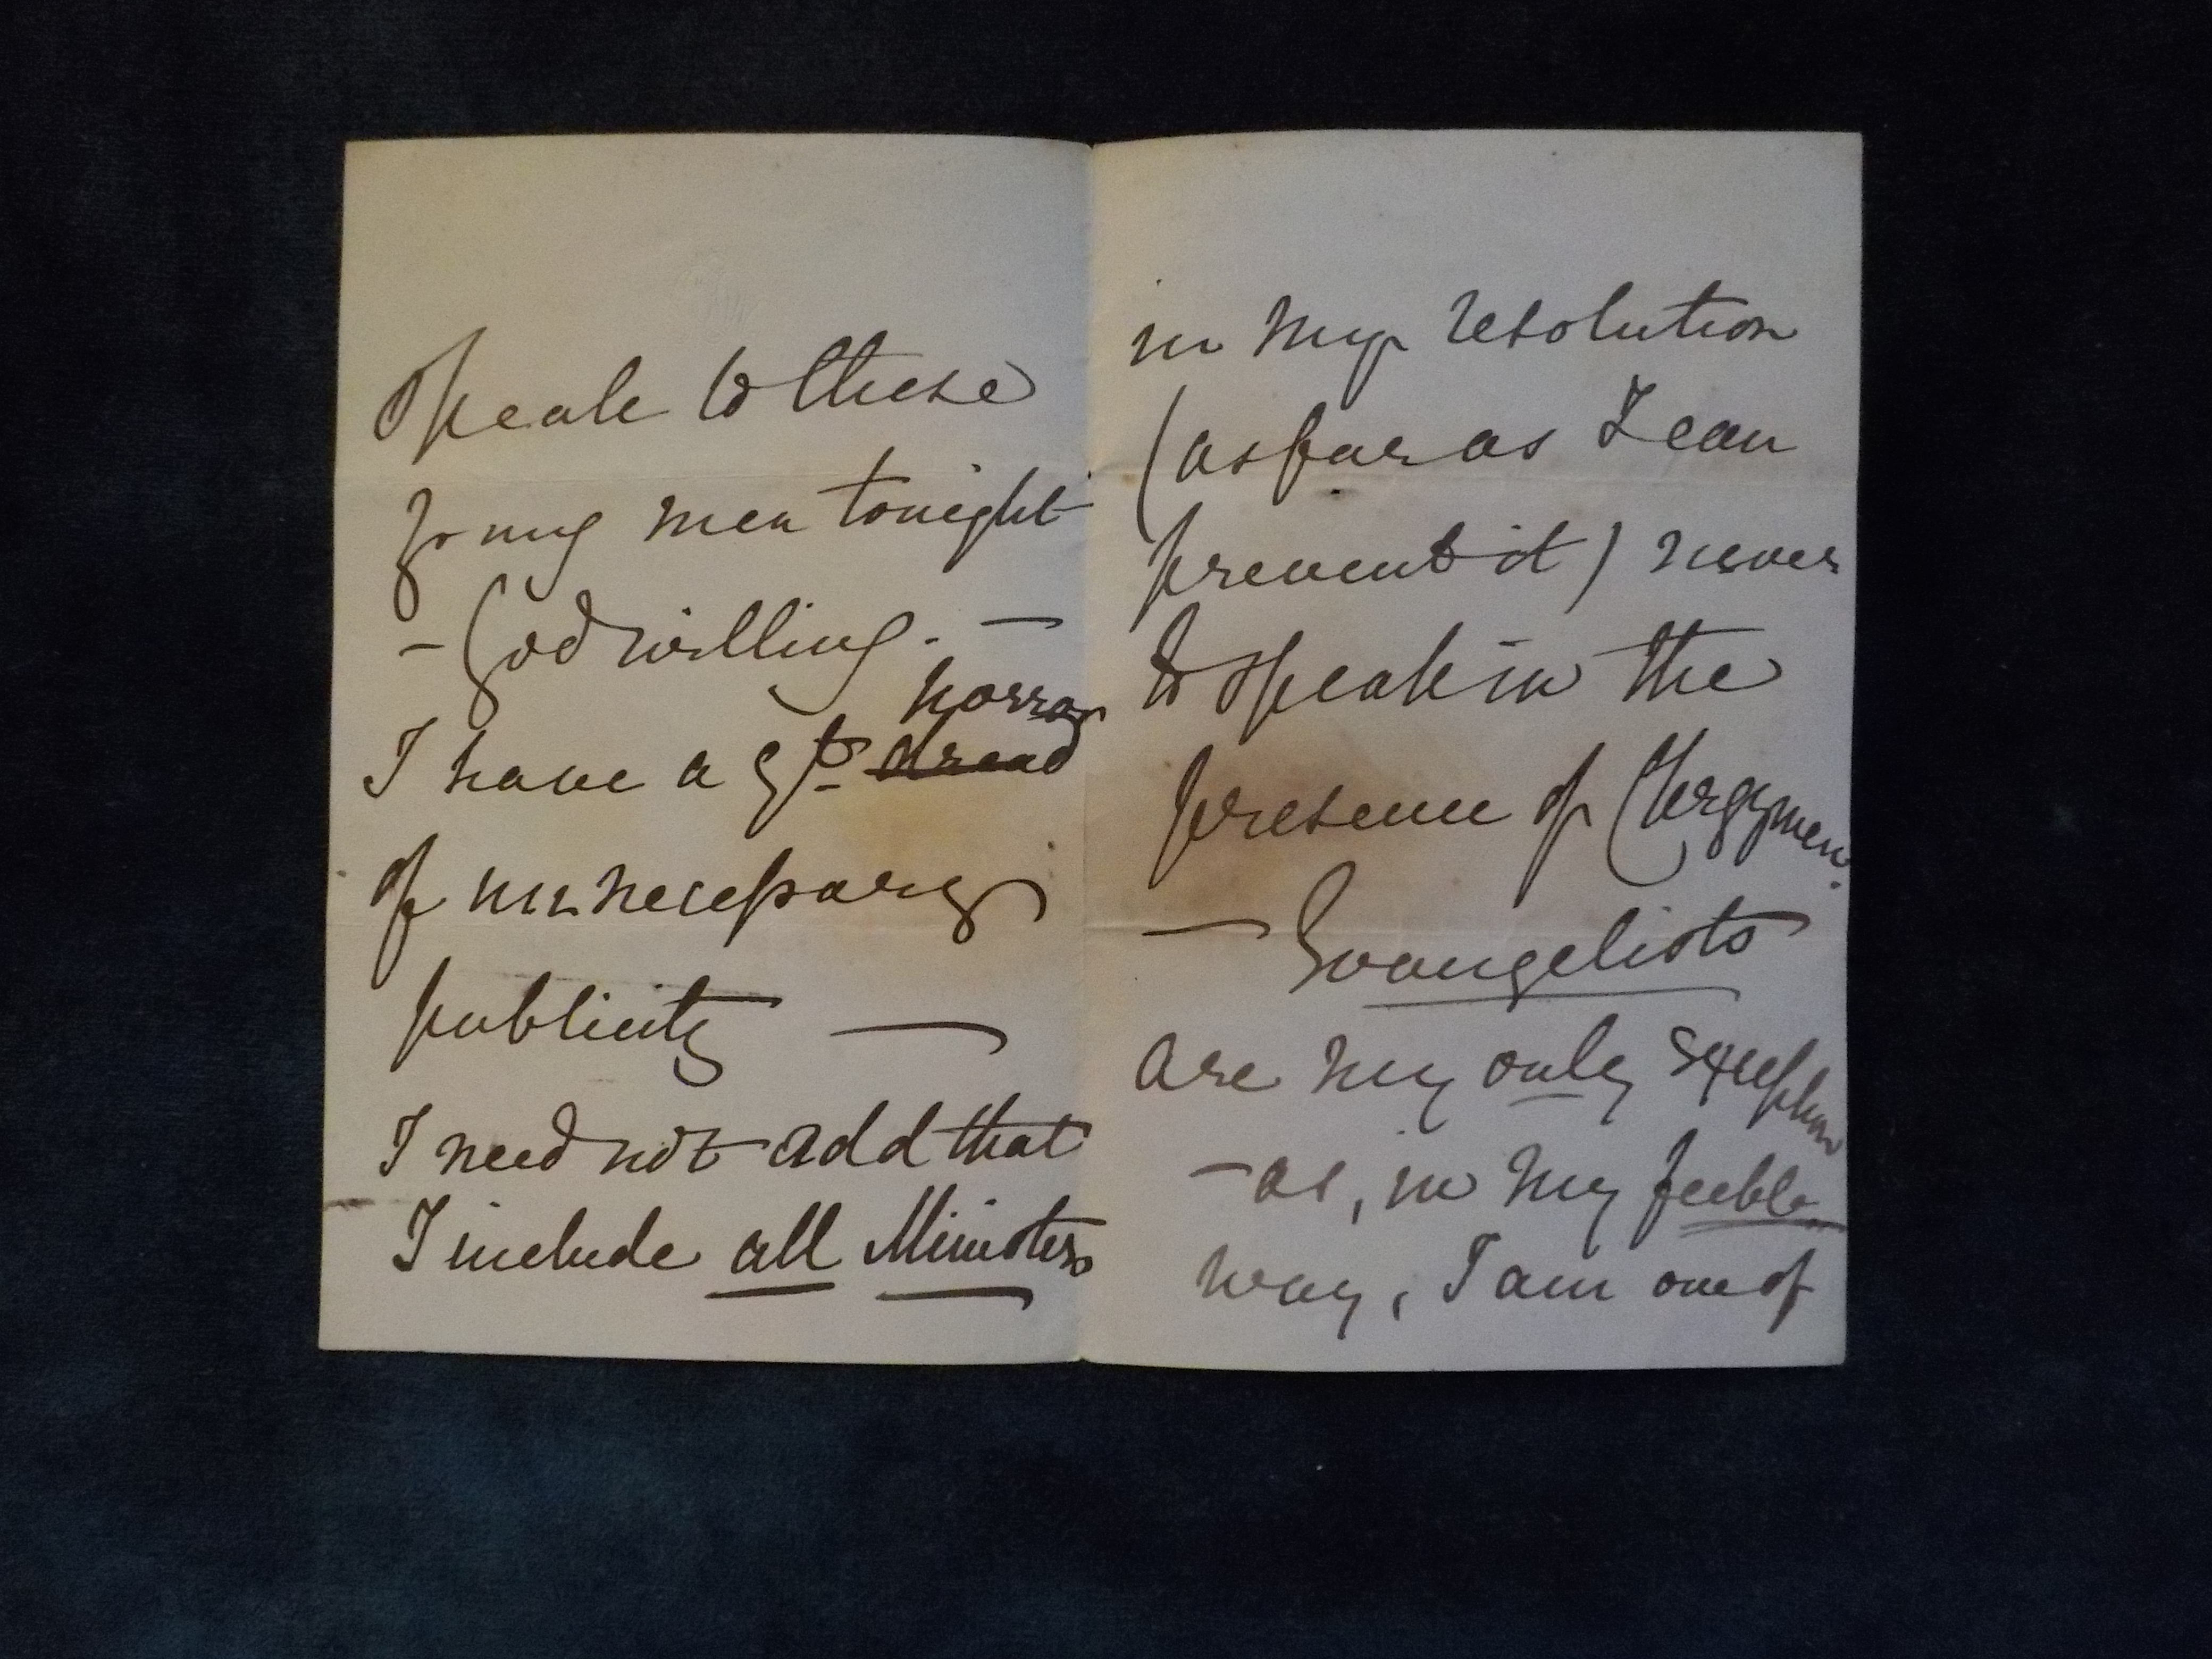 speak to these
young men tonight
— God willing. —
horror
I have a gt. dread
of unnecessary
publicity —
I need not add that
I include all Ministers
in my resolution
(as far as I can
prevent it) never
to speak in the
presence of Clergymen.
— Evangelists
are my only exception
— as, in my feeble
way, I am one of